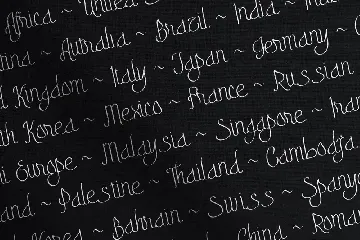 Africa ~ United
~ Australia ~ Brazil ~ India ~
Kingdom ~ Italy ~ Japan ~ Germany ~
Korea ~ Mexico ~ France ~ Russian
Europe ~ Malaysia ~ Singapore ~ Iran
~ Palestine ~ Thailand ~ Cambodja
~ Bahrain ~ Swiss ~ Spany
~ China ~ Roma